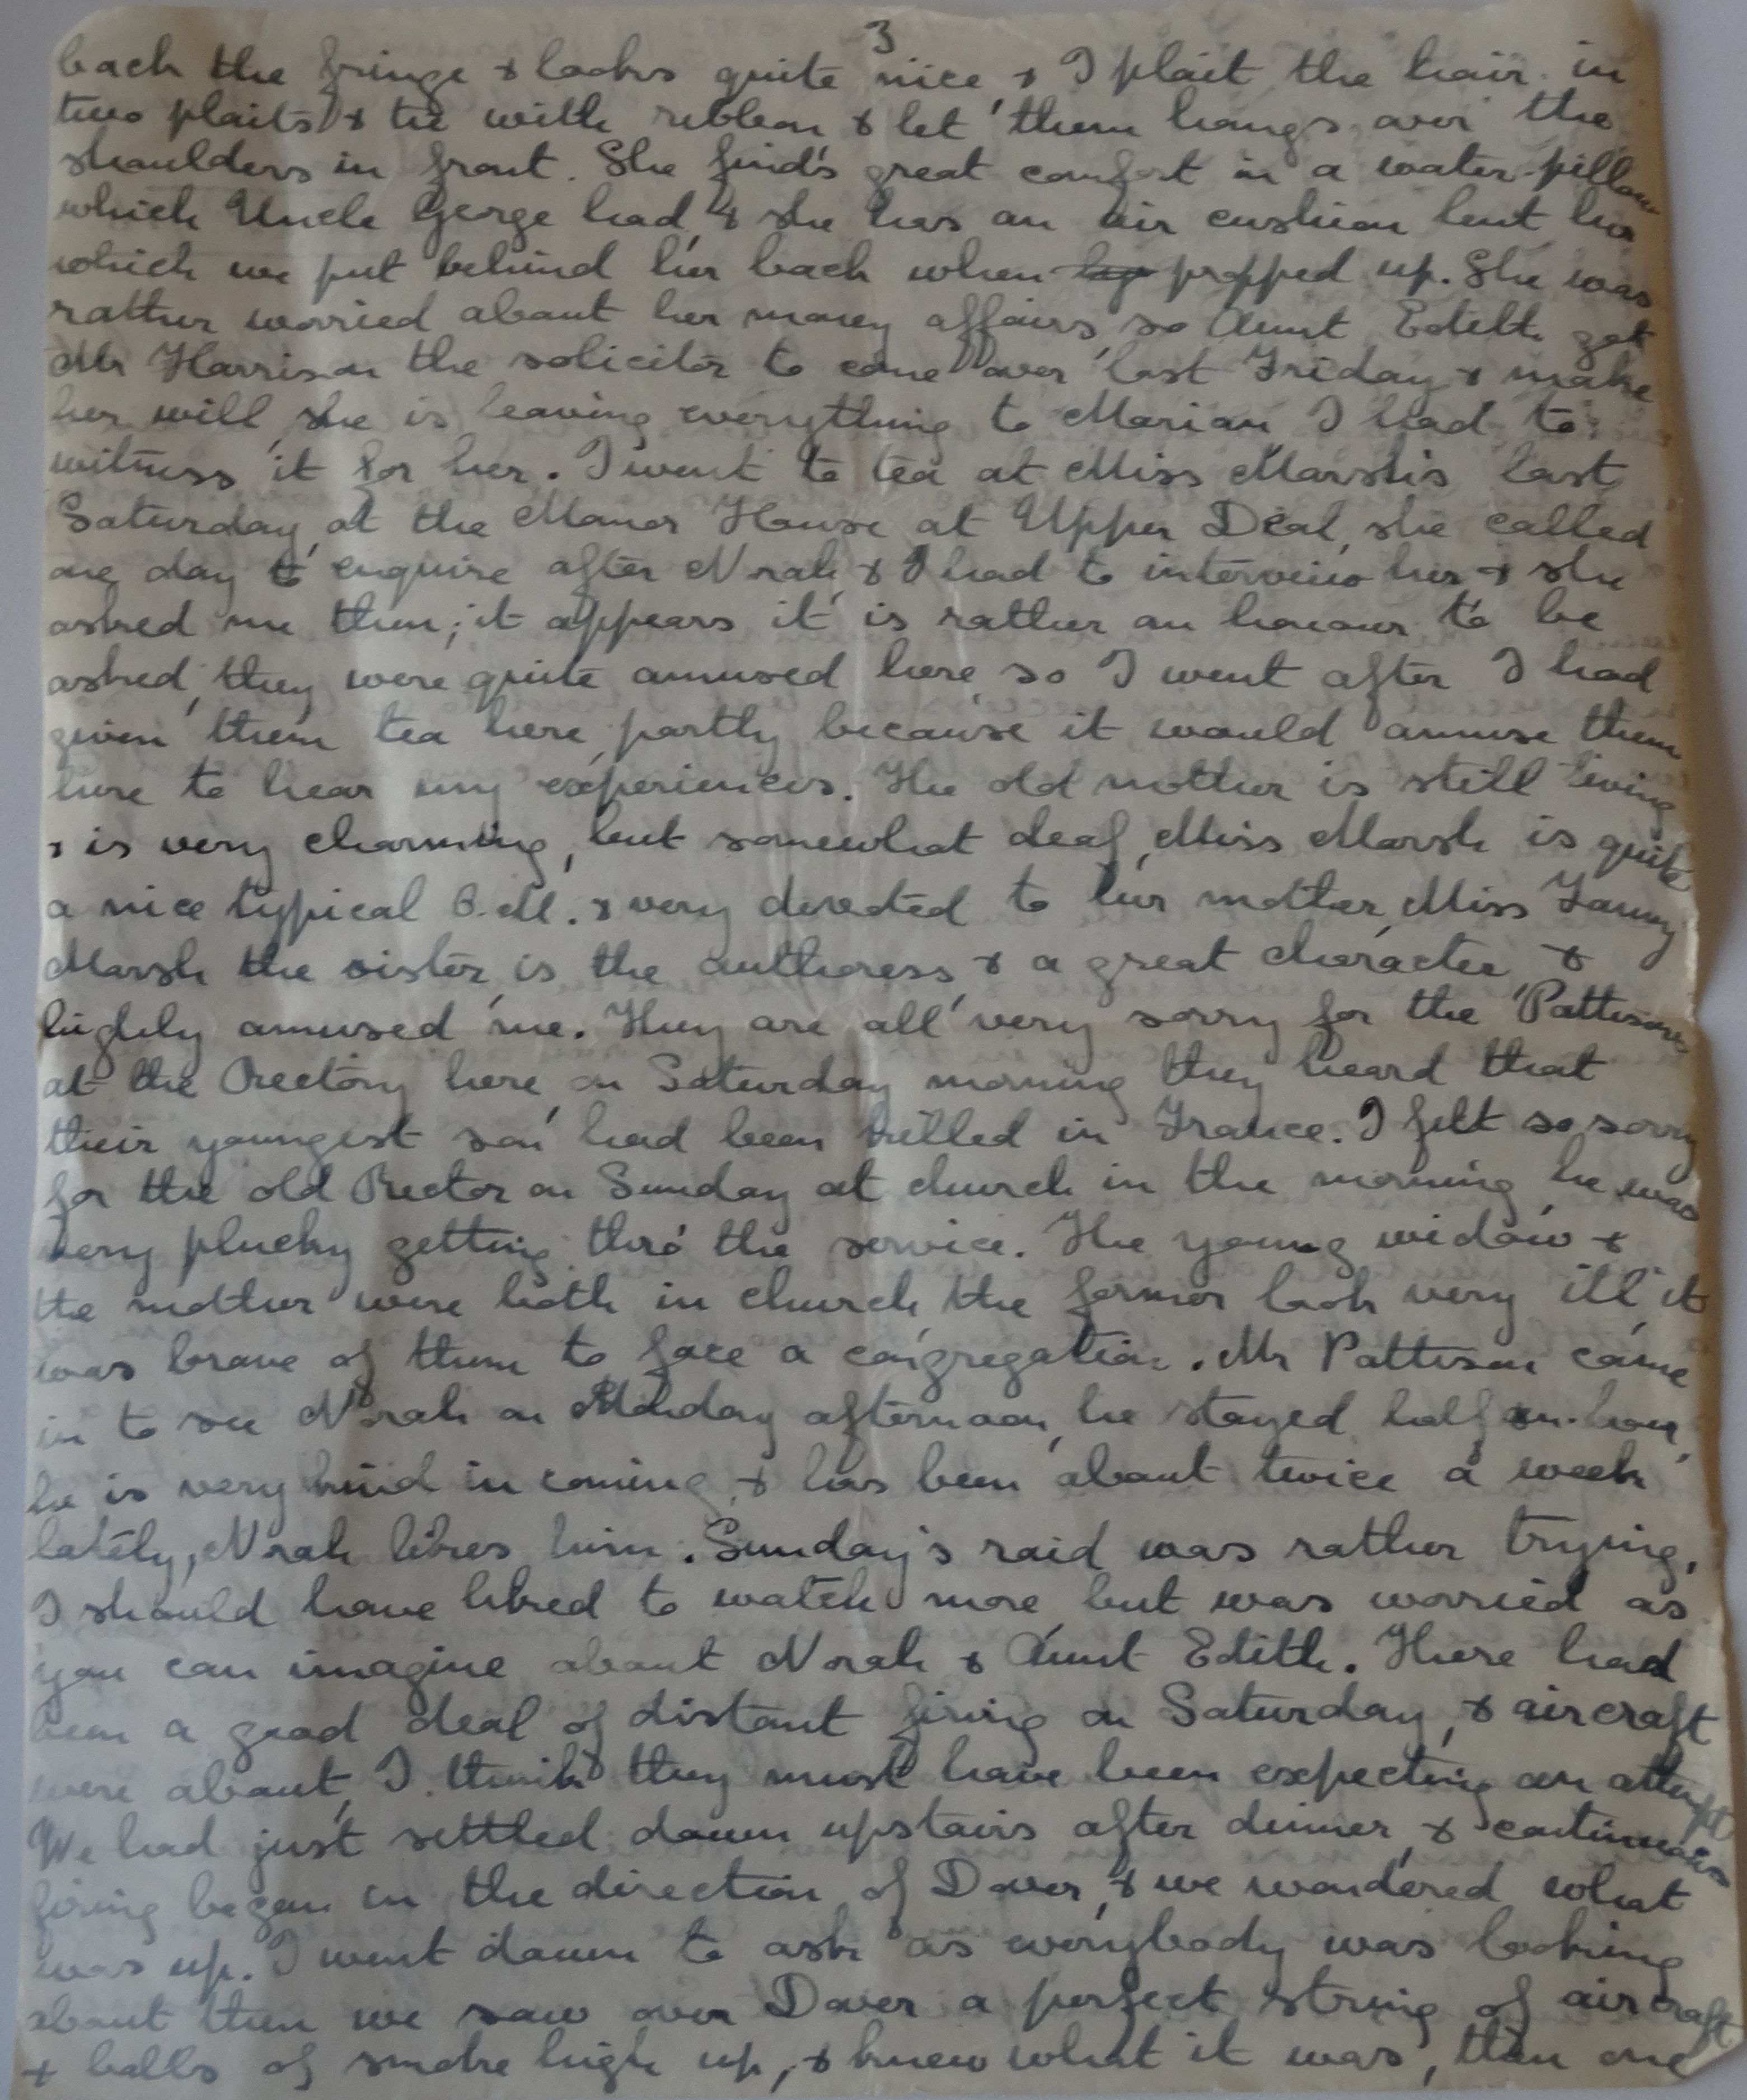 3
back the fringe & looks quite nice, & I plait the hair in
two plaits & tie with ribbon & let them hang over the
shoulders in front. She finds great comfort in a water-pillow
which Uncle George had, & she has an air cushion lent her
which we put behind her back when propped up. She was
rather worried about her money affairs, so Aunt Edith got
Mr Harrison the solicitor to come over last Friday & make
her will, she is leaving everything to Marian, I had to
witness it for her. I went to tea at Miss Marsh's last
Saturday, at the Manor House at Upper Deal, she called
one day to enquire after Norah, & I had to interview her & she
asked me then; it appears it is rather an honour to be
asked, they were quite amused here, so I went after I had
given them tea here, partly because it would amuse them
here to hear my experiences. The old mother is still living
& is very charming, but somewhat deaf, Miss Marsh is quite
a nice typical O.M. & very devoted to her mother, Miss Fanny
Marsh the sister, is the authoress, & a great character, &
highly amused me. They are all very sorry for the Pattisons
at the Rectory here, on Saturday morning they heard that
their youngest son had been killed in France. I felt so sorry
for the old Rector on Sunday at church in the morning, he was
very plucky getting thro' the service. The young widow &
the mother were both in church, the former look very ill, it
was brave of them to face a congregation. Mr Pattison came
in to see Norah on Monday afternoon, he stayed half an-hour,
he is very kind in coming, & has been about twice a week
lately, Norah likes him. Sunday's raid was rather trying,
I should have liked to watch more but was worried as
you can imagine about Norah & Aunt Edith. There had
been a good deal of distant firing on Saturday, & aircraft
were about, I think they must have been expecting an attempt
We had just settled down upstairs after dinner, & continuous
firing began in the direction of Dover, & we wondered what
was up. I went down to ask as everybody was looking
about then we saw over Dover a perfect string of aircraft
& balls of smoke high up, & knew what it was, then one